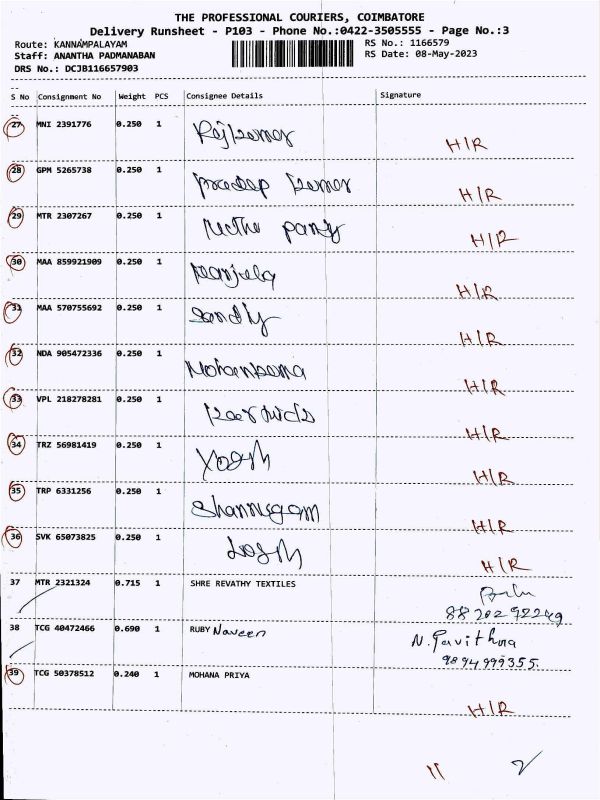 THE PROFESSIONAL COURIERS, COIMBATORE
Delivery Runsheet - P103 - Phone No.:0422-3505555 - Page No.:3
Route: KANNAMPALAYAM RS No.: 1166579
Staff: ANANTHA PADMANABAN RS Date: 08-May-2023
DRS No.: DCJB116657903
S No Consignment No Weight PCS Consignee Details Signature
27 MNI 2391776 0.250 1 Rajkumar H/R
28 GPM 5265738 0.250 1 pradeep kumar H/R
29 MTR 2307267 0.250 1 H/R
30 MAA 859921909 0.250 1 H/R
31 MAA 570755692 0.250 1 Sandly H/R
32 NDA 905472336 0.250 1 H/R
33 VPL 218278281 0.250 1 H/R
34 TRZ 56981419 0.250 1 H/R
35 TRP 6331256 0.250 1 Shanmugam H/R
36 SVK 65073825 0.250 1 H/R
37 MTR 2321324 0.715 1 SHRE REVATHY TEXTILES
38 TCG 40472466 0.690 1 RUBY Naveen N. Pavithra
9894999355.
39 TCG 50378512 0.240 1 MOHANA PRIYA H/R
11